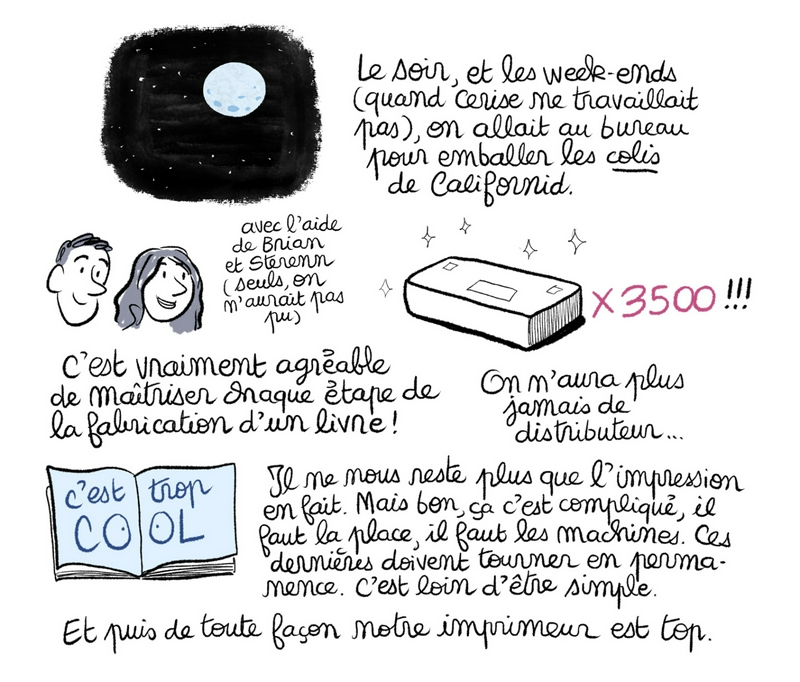 Le soir, et les week-ends
(quand Cerise ne travaillait
pas), on allait au bureau
pour emballer les colis
de Californid.
avec l'aide
de Brian
et Sterenn
(seuls, on
n'aurait pas
pu)
x 3500 !!!
C'est vraiment agréable
de maîtriser chaque étape de
la fabrication d'un livre !
On n'aura plus
jamais de
distributeur...
c'est trop
COOL
Il ne nous reste plus que l'impression
en fait. Mais bon, ça c'est compliqué, il
faut la place, il faut les machines. Ces
dernières doivent tourner en perma-
nence. C'est loin d'être simple.
Et puis de toute façon notre imprimeur est top.